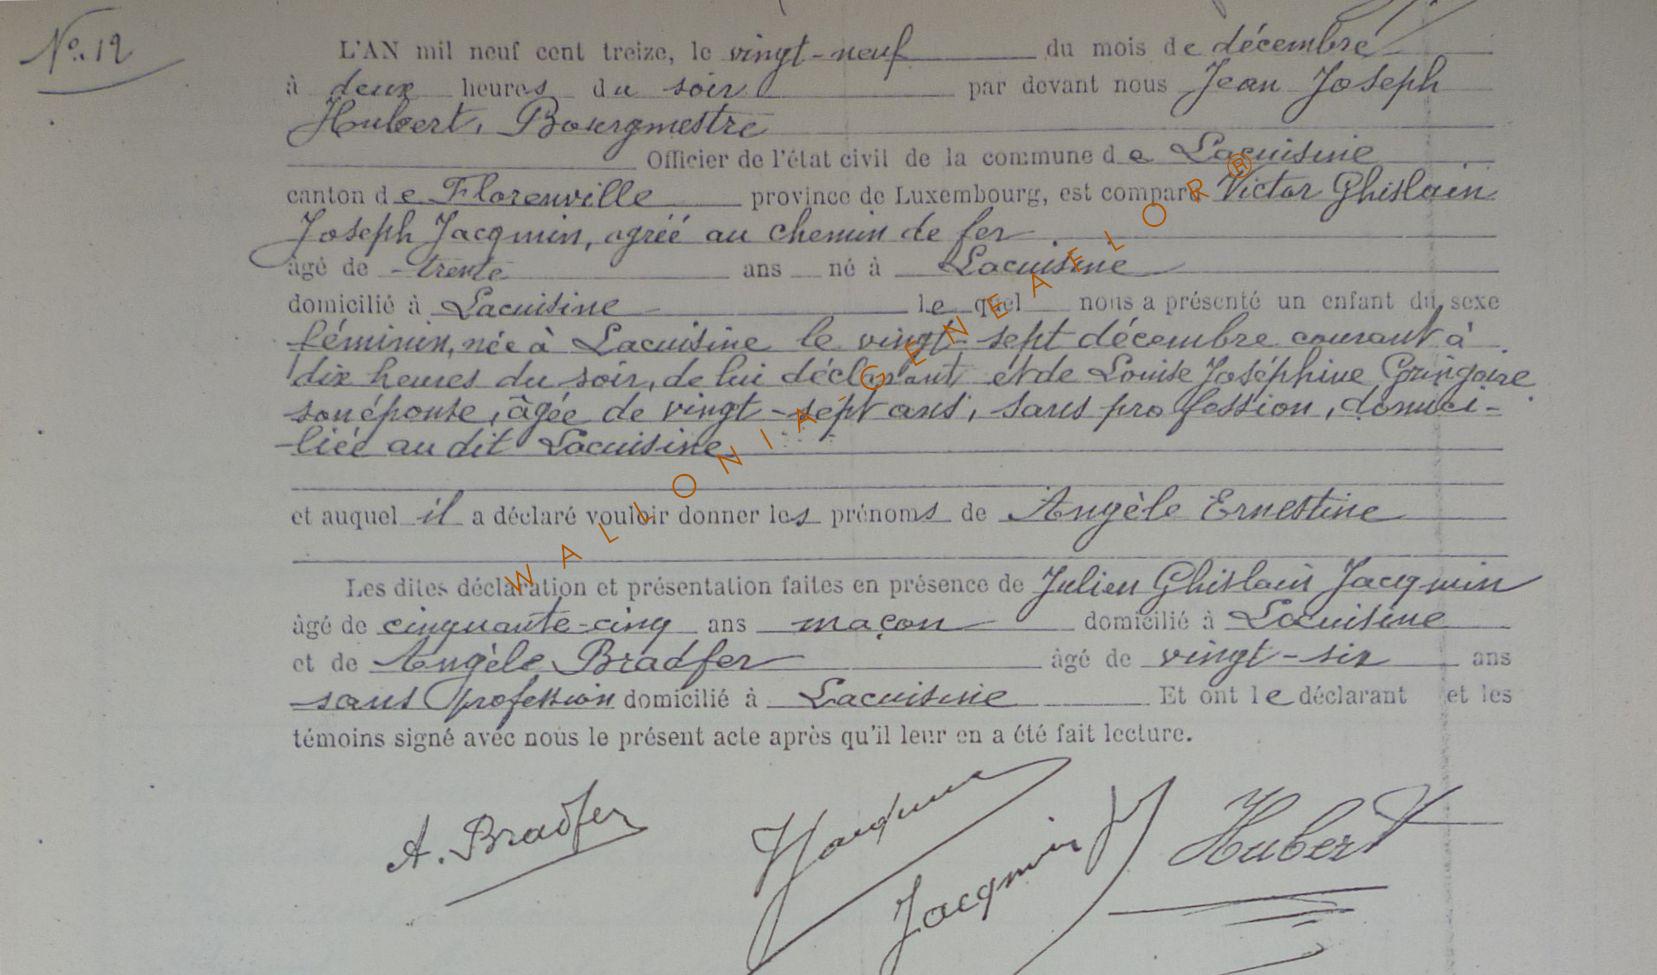 No. 12
L'AN mil neuf cent treize, le vingt-neuf du mois de décembre
à deux heures du soir par devant nous Jean Joseph
Hubert, Bourgmestre
Officier de l'état civil de la commune de Lacuisine
canton de Florenville province de Luxembourg, est comparu Victor Ghislain
Joseph Jacqmin, agréé au chemin de fer
âgé de trente ans né à Lacuisine
domicilié à Lacuisine lequel nous a présenté un enfant du sexe
féminin, née à Lacuisine le vingt-sept décembre courant à
dix heures du soir, de lui déclarant et de Louise Joséphine Gringoire
son épouse, âgée de vingt-sept ans, sans profession, domici-
liée au dit Lacuisine
et auquel il a déclaré vouloir donner les prénoms de Angèle Ernestine
Les dites déclaration et présentation faites en présence de Julien Ghislain Jacqmin
âgé de cinquante-cinq ans maçon domicilié à Lacuisine
et de Angèle Bradfer âgé de vingt-six ans
sans profession domicilié à Lacuisine Et ont le déclarant et les
témoins signé avec nous le présent acte après qu'il leur en a été fait lecture.
A. Bradfer Jacqmin Jacqmin J Hubert
WALLONIA-GENEAFLOR®